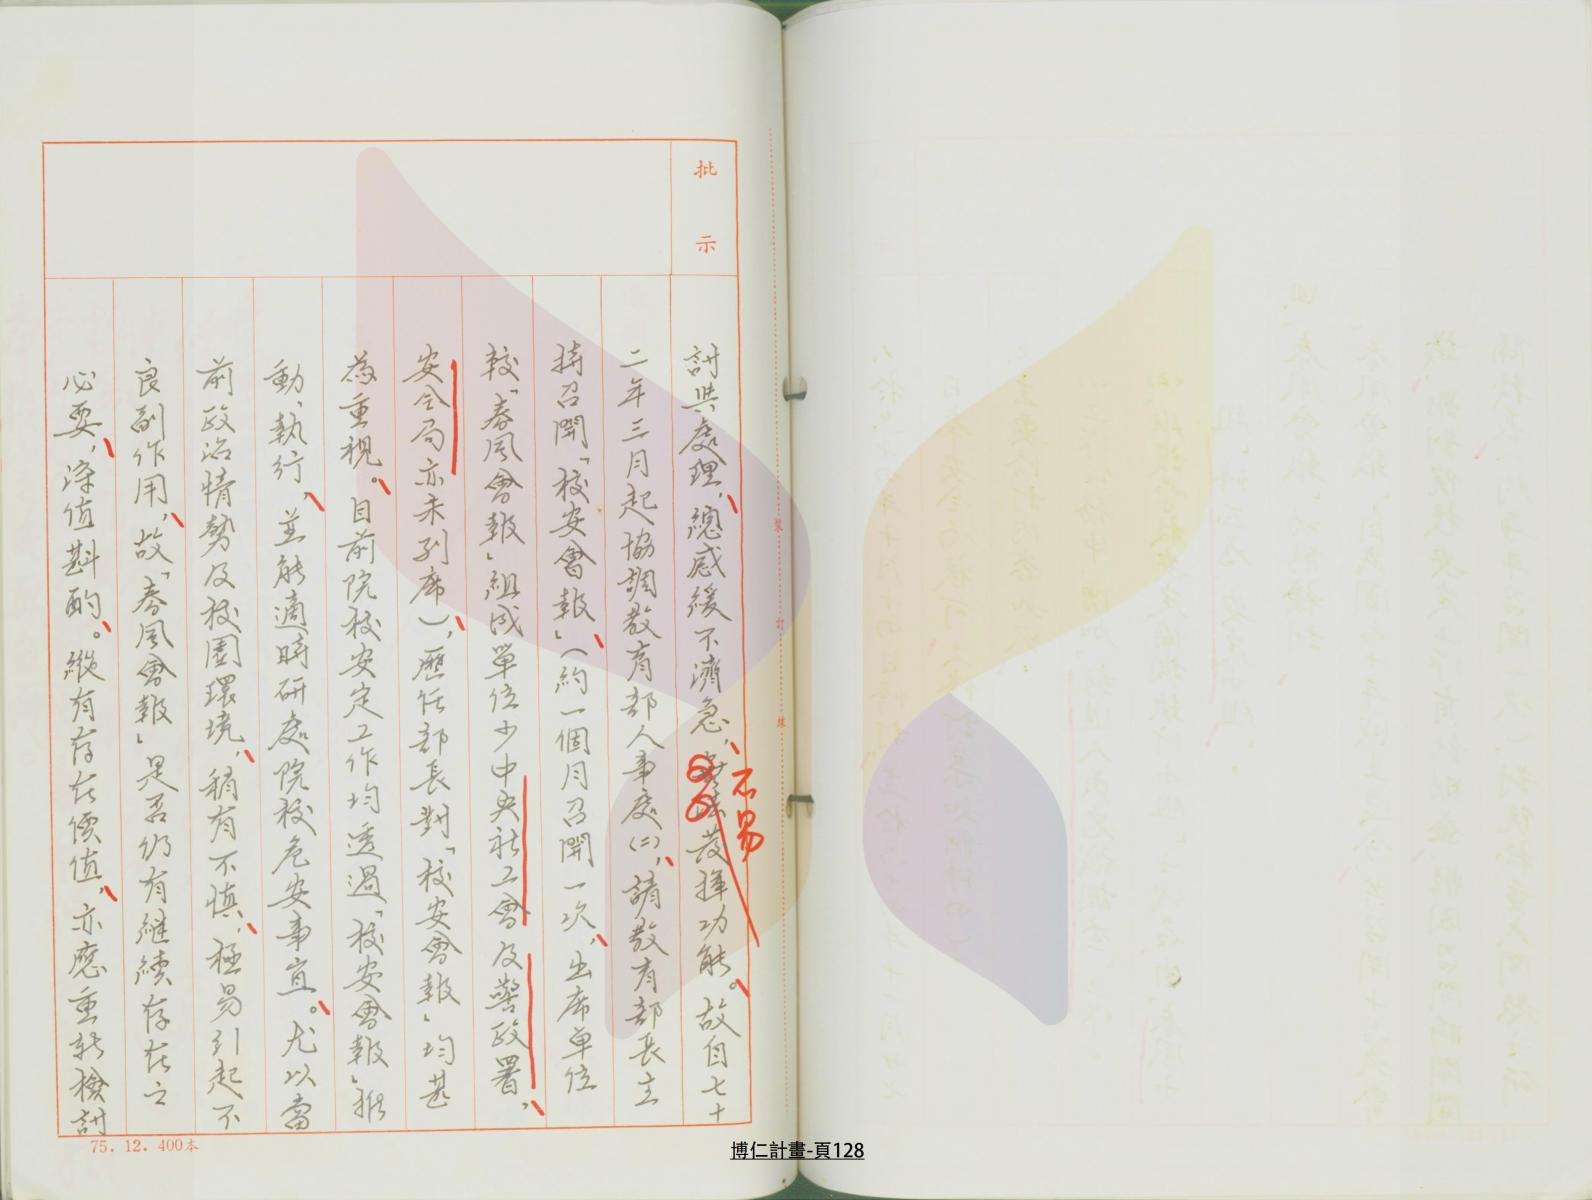 批示
討與處理，總感緩不濟急，發揮功能。故自七十
不易
二年三月起協調教育部人事處(二)，請教育部長主
持召開「校安會報」（約一個月召開一次，出席單位
較「春風會報」組成單位少中央社工會及警政署，
安全局亦未列席），歷任部長對「校安會報」均甚
為重視。目前院校安定工作均透過「校安會報」推
動、執行，並能適時研處院校危安事宜。尤以當
前政治情勢及校園環境，稍有不慎，極易引起不
良副作用，故「春風會報」是否仍有繼續存在之
必要，深值斟酌。縱有存在價值，亦應重新檢討
75. 12. 400本
裝
訂
線
博仁計畫-頁128